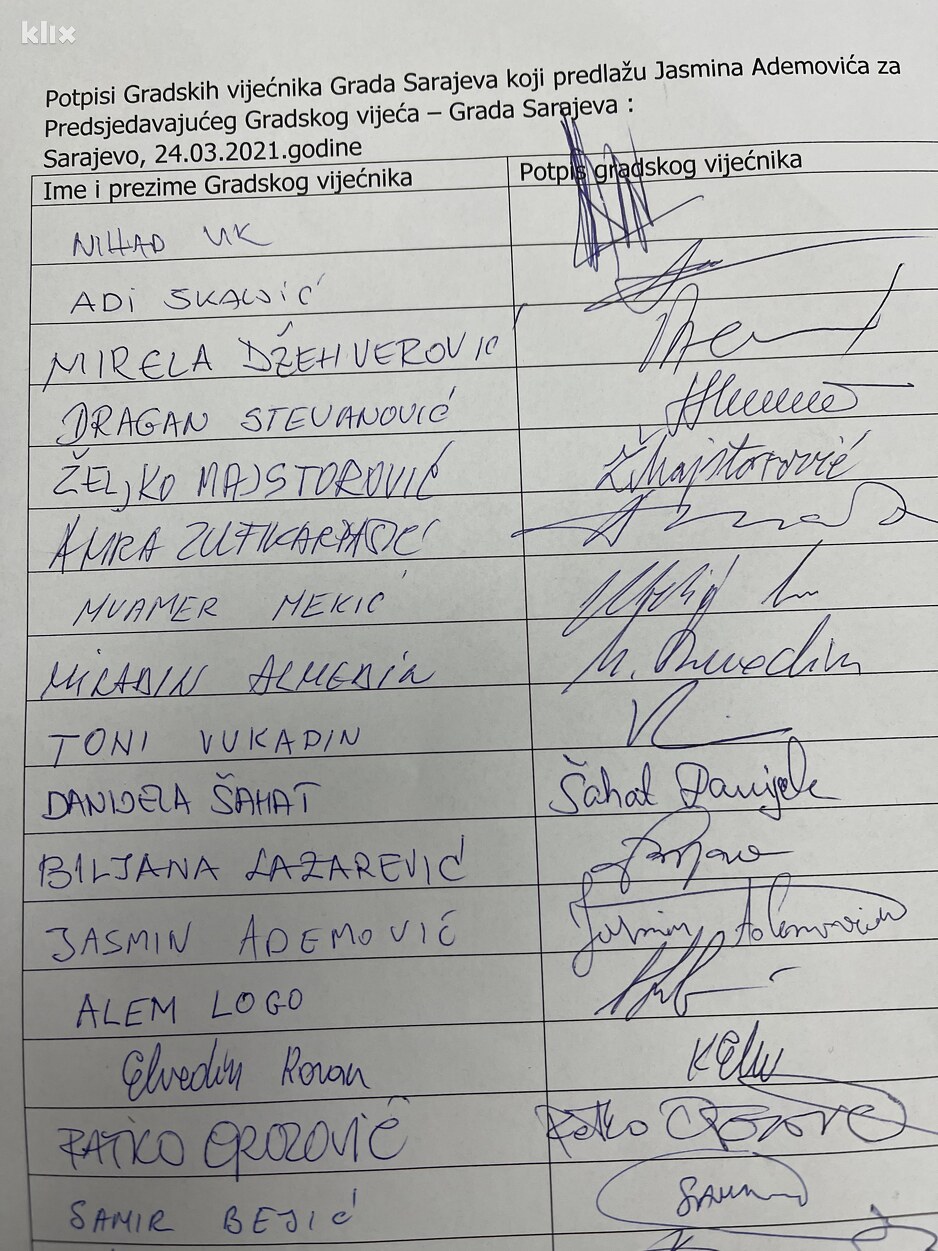 klix
Potpisi Gradskih vijećnika Grada Sarajeva koji predlažu Jasmina Ademovića za
Predsjedavajućeg Gradskog vijeća – Grada Sarajeva :
Sarajevo, 24.03.2021.godine
Ime i prezime Gradskog vijećnika Potpis gradskog vijećnika
NIHAD UK
ADI ŠKALJIĆ
MIRELA DŽEHVEROVIĆ
DRAGAN STEVANOVIĆ
ŽELJKO MAJSTOROVIĆ ŽMajstorović
AMRA ZULFIKARPAŠIĆ
MUAMER MEKIĆ
MIRADIN ALMEDIN
TONI VUKADIN
DANIJELA ŠAHAT Šahat Danijela
BILJANA LAZAREVIĆ
JASMIN ADEMOVIĆ Jasmin Ademović
ALEM LOGO
Elvedin
RATKO OROZOVIĆ Ratko
SAMIR BEJIĆ